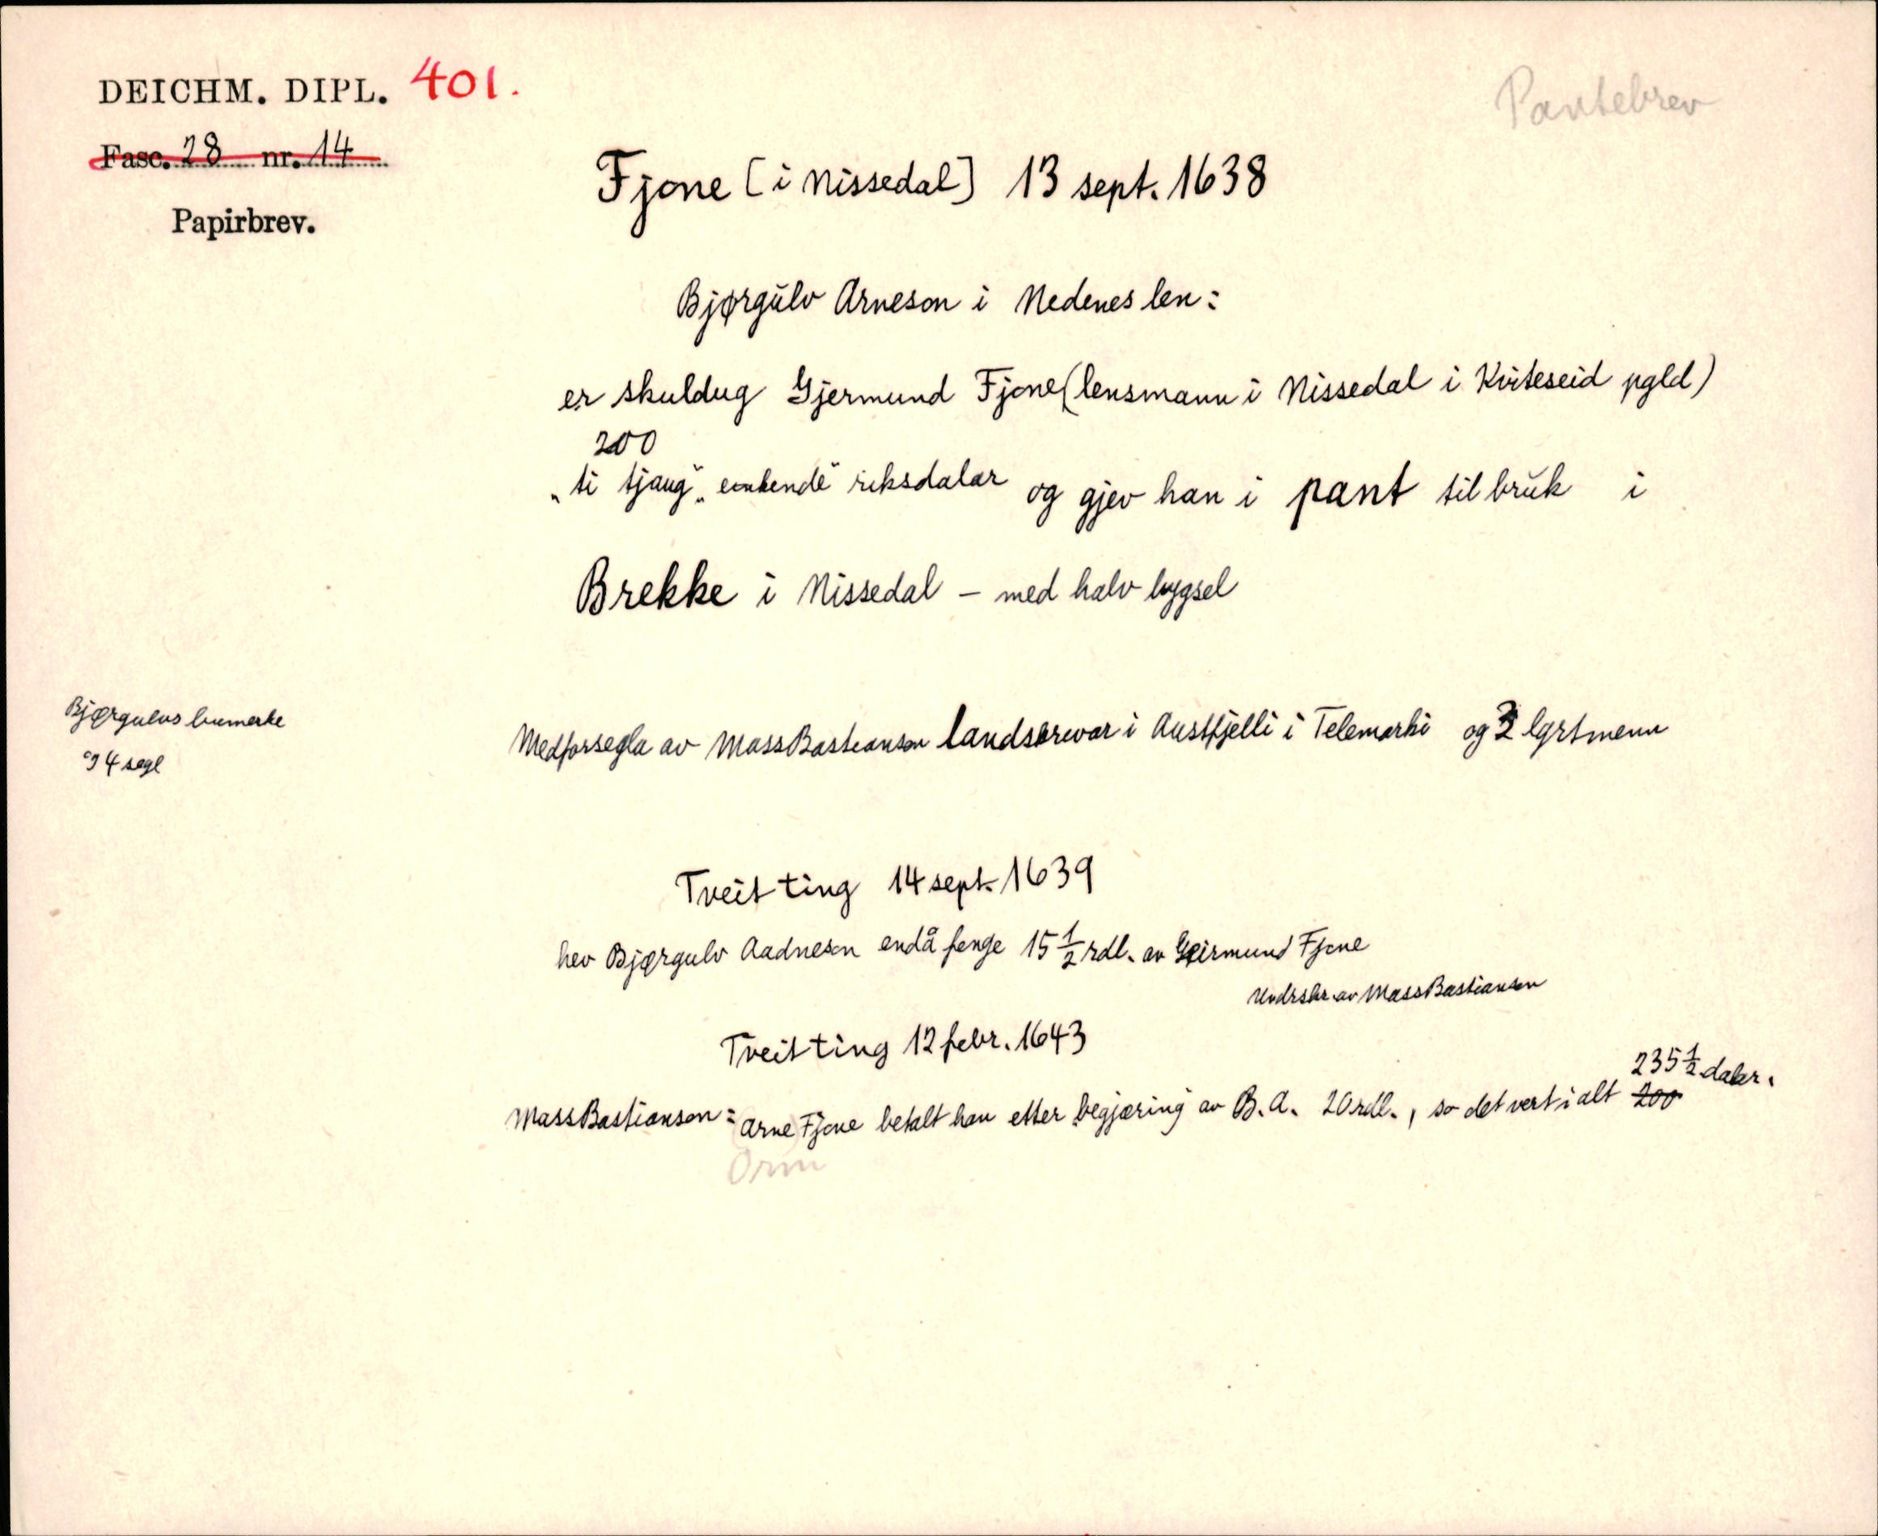 DEICHM. DIPL. 401.
Pantebrev
Fasc. 28 nr. 14
Papirbrev.
Fjone [i Nissedal] 13 sept. 1638
Bjørgulv Arneson i Nedenes len:
er skuldug Gjermund Fjone (lensmann i Nissedal i Kviteseid pgld)
200
„ti tjaug“ enkende riksdalar og gjev han i pant til bruk i
Brekke i Nissedal – med halv bygsel
Bjørgulvs bumerke
og 4 segl
Medforsegla av Mass Bastianson landskrivar i Austfjelli i Telemarki og 3 lgrtmenn
Tveit ting 14 sept. 1639
hev Bjørgulv Aadneson endå fenge 15 1/2 rdl. av Geirmund Fjone
Undrskr. av Mass Bastianson
Tveit ting 12 febr. 1643
235 1/2 daler.
Mass Bastianson: Arne Fjone betalt han etter begjæring av B. A. 20 rdl., so det vert i alt 200
Orm